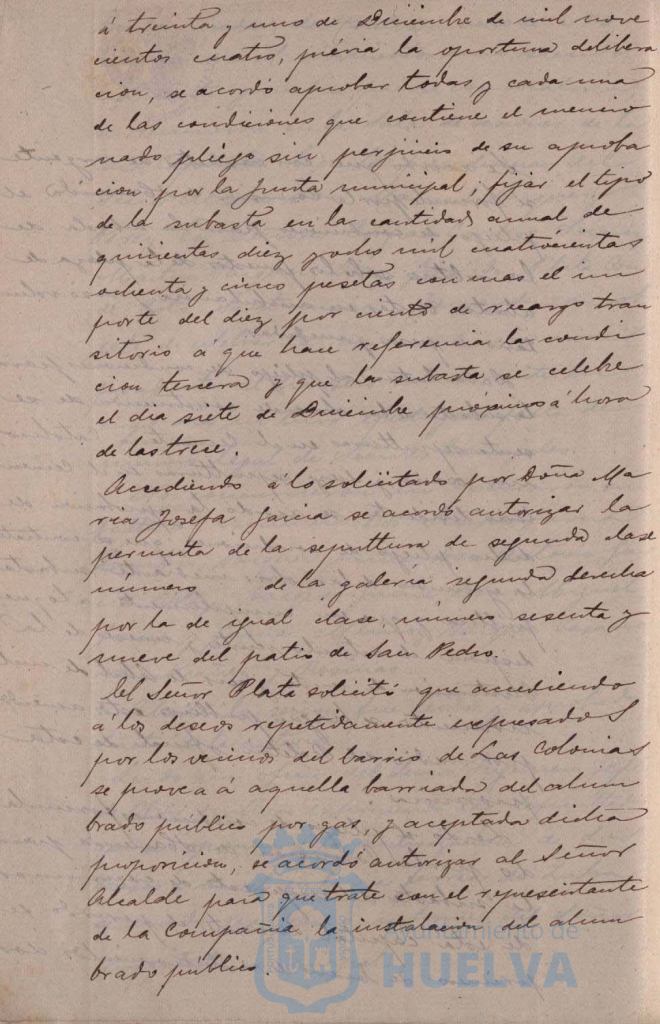 á treinta y uno de Diciembre de mil nove
cientos cuatro, prévia la oportuna delibera
cion, se acordó aprobar todas y cada una
de las condiciones que contiene el mencio
nado pliego sin perjuicio de su aproba
cion por la Junta municipal; fijar el tipo
de la subasta en la cantidad anual de
quinientas diez y ocho mil cuatrocientas
ochenta y cinco pesetas con mas el im
porte del diez por ciento de recargo tran
sitorio á que hace referencia la condi
cion tercera y que la subasta se celebre
el dia siete de Diciembre próximo á hora
de las trece.
Accediendo á lo solicitado por Doña Ma
ria Josefa Garcia se acordó autorizar la
permuta de la sepultura de segunda clase
número de la galería segunda derecha
por la de igual clase, número sesenta y
nueve del patio de San Pedro.
El Señor Plata solicitó que accediendo
á los deseos repetidamente expresados
por los vecinos del barrio de Las Colonias
se provea á aquella barriada del alum
brado público por gas, y aceptada dicha
proposicion, se acordó autorizar al Señor
Alcalde para que trate con el representante
de la Compañia la instalacion del alum
brado público.
Ayuntamiento de
HUELVA